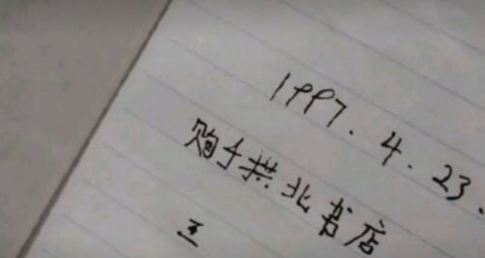 1997.4.23.
购于拱北书店
王